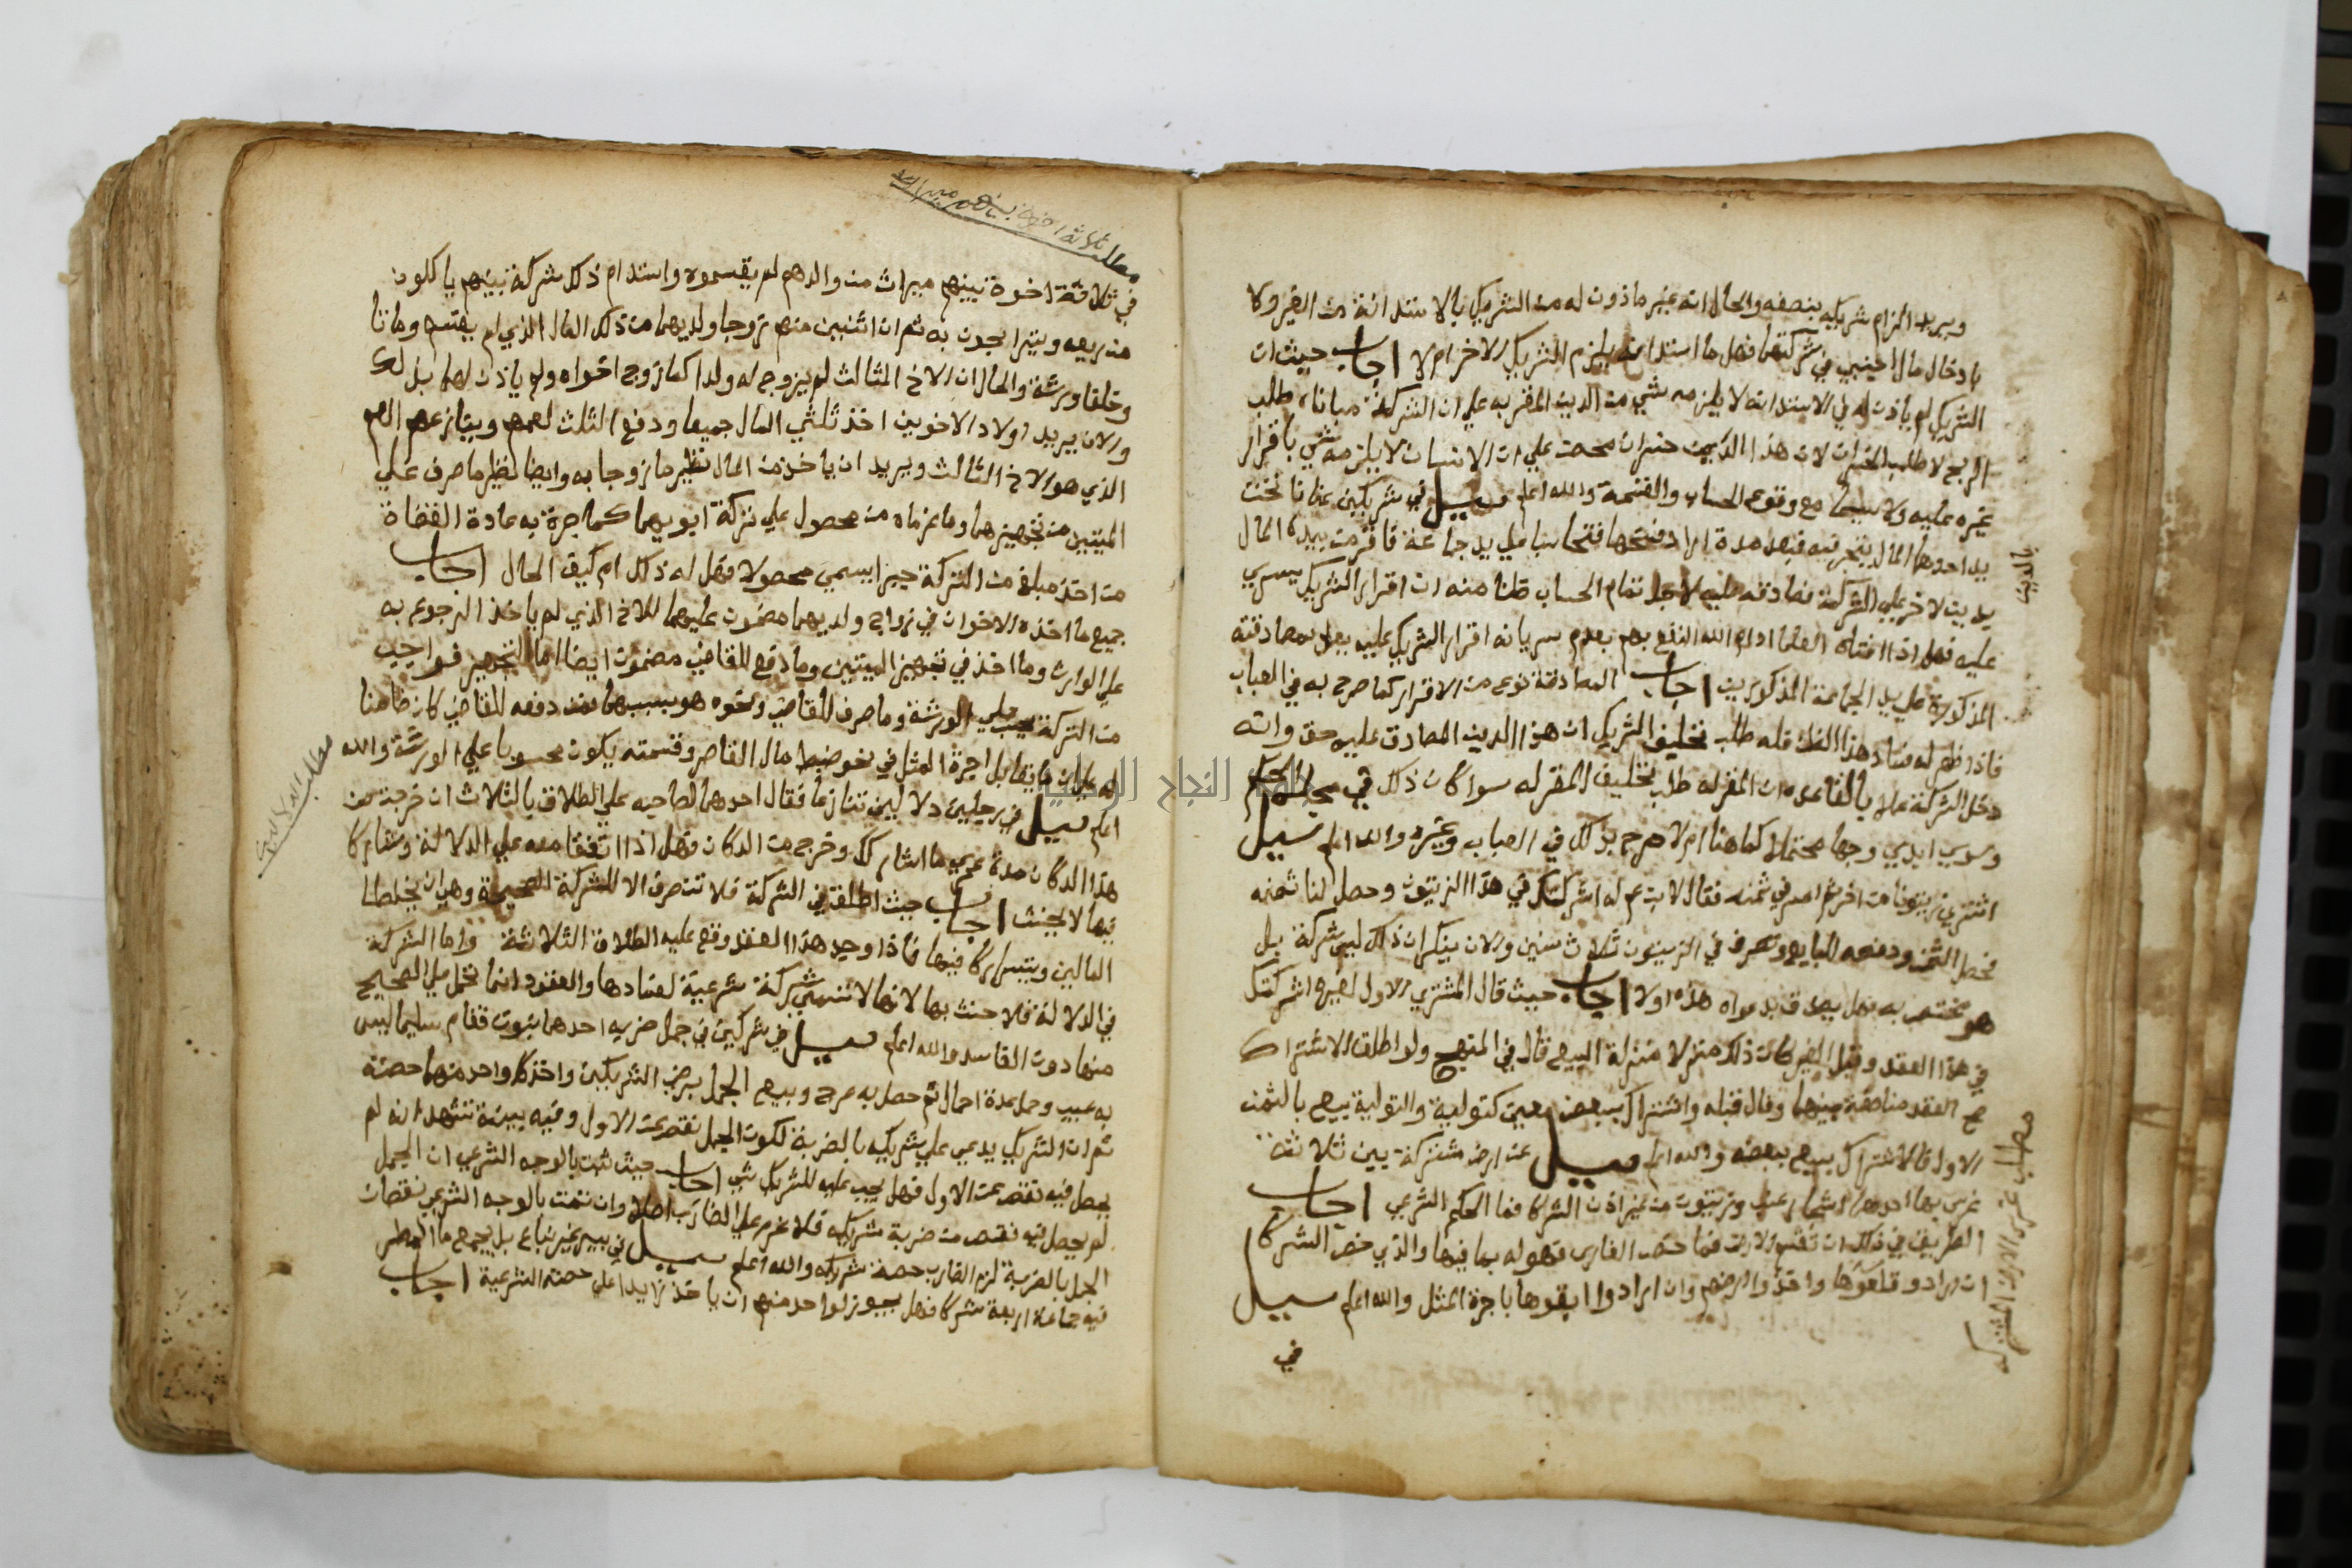 ويريد الزام شريكه بنصفه والحال انه غير ماذون له من الشريك بالاستدانة من الغير ولا
بادخال مال اجنبي في شركتهما فهل ما استدانه يلزم الشريك الاخر ام لا اجاب حيث ان
الشريك لم ياذن له في الاستدانة لا يلزمه شي من الدين المقر به علي ان الشركة طلب
الربح لا طلب الخسران لان هذا الدين خسران محض علي ان الانسان لا يلزمه شي باقرار
غيره عليه ولا سيما مع وقوع الحساب والقسمة والله اعلم سيل في شريكين عنانا تحت
يد احدهما المال يتجر فيه فبعد مدة اراد فسخها فتحاسبا علي يد جماعة فاقر من بيده المال
بدين لاخر علي الشركة فصادقه عليه لاجل تمام الحساب ظنا منه ان اقرار الشريك يسري
عليه فهل اذا افتاه العلما ادام الله النفع بهم بعدم سريانه اقرار الشريك عليه يعمل بمصادقته
المذكورة علي يد الجماعة المذكورين اجاب المصادقة نوع من الاقرار كما صرح به في العباب
فاذا ظهر له فساد هذا الظن فله طلب تحليف الشريك ان هذا الدين المصادق عليه حق وانه
دخل الشركة عملا بالقاعدة ان المقر له طلب تحليف المقر له سوا كان ذلك في مجلس الحكم
وسوي ابدي وجها محتملا كما هنا ام لا صرح بذلك في العباب وغيره والله اعلم سيل
اشتري زيتونا من اخر ثم اعسر في ثمنه فقال لابن عم له اشركتك في هذا الزيتون وحصل لنا ثمنه
فحصل الثمن ودفعه للبايع وتصرف في الزيتون ثلاث سنين والان ينكر ان ذلك ليس شركة بل
هو مختص به فهل يصدق بدعواه هذه اولا اجاب حيث قال المشتري الاول لغيره اشركتك
في هذا العقد وقبل الغير كان ذلك منزلا منزلة البيع قال في المنهج ولو اطلق الاشتراك
صح العقد مناصفة بينهما وقال قبله واشتراك ببعض معين كتولية والتولية بيع بالثمن
الاول فالاشتراك بيع بعضه والله اعلم سيل عن ارض مشتركة بين ثلاثة
غرس بها احدهما اشجار عنب وزيتون من غير اذن الشركا فما الحكم الشرعي اجاب
الطريق في ذلك ان تقسم الارض فما خص الغارس فهو له بما فيها والذي خص الشركا
ان ارادو قلعوها واخذوا ارضهم وان ارادوا ابقوها باجرة المثل والله اعلم سيل
في
بالدين
مطلب
مطلب ثلاثة اخوة بينهم ميراث
في ثلاثة اخوة بينهم ميراث من والدهم لم يقسموه واستدام ذلك شركة بينهم ياكلون
من ريعه ويتجرون به ثم ان اثنين منهم تزوجا ولديهما من ذلك المال الذي لم يقتسم وماتا
وخلفا ورثة والحال ان الاخ الثالث لم يزوج له ولدا كما زوج اخواه ولم ياذن لهما بذلك
والان يريد اولاد الاخوين اخذ ثلثي المال جميعا ودفع الثلث لعمهم وينازعهم العم
الذي هو الاخ الثالث ويريد ان ياخذ من المال نظير ما زوجا به وايضا نظير ما صرف علي
الميتين من تجهيزهما وما غرماه من محصول علي تركة ابويهما كما جرة به عادة القضاة
من اخذ مبلغ من التركة جبرا يسمي محصولا فهل له ذلك ام كيف الحال اجاب
جميع ما اخذه الاخوان في زواج ولديهما مضمون عليهما للاخ الذي لم ياخذ الرجوع به
علي الوارث وما اخذ في تجهيز الميتين وما دفع للقاضي مضمون ايضا اما التجهيز فواجب
من التركة علي الورثة وما صرف للقاضي ونحوه هو بسببهما فمن دفعه للقاضي كان ضامنا
له علي ان ما يقابل اجرة المثل في نحو ضبط مال القاصر وقسمته يكون محسوبا علي الورثة والله
اعلم سيل في رجلين دلالين تنازعا فقال احدهما لصاحبه علي الطلاق بالثلاث ان خرجت من
هذا الدكان مدة عمري ما اشاركك وخرج من الدكان فهل اذا اتفقا معه علي الدلالة وتشاركا
فيها لا يحنث اجاب حيث اطلقت في الشركة فلا تنصرف الا للشركة الصحيحة وهي ان يخلطا
المالين ويتشاركا فيها فاذا وجد هذا العقد وقع عليه الطلاق الثلاثة واما الشركة
في الدلالة فلا حنث بها لانها لا تسمي شركة شرعية لفسادها والعقود انما تحمل علي الصحيح
منها دون الفاسد والله اعلم سيل في شركين في جمل ضربه احدهما بنبوت فقام سليما ليس
به عيب وحمل عدة احمال ثم حصل به عرج وبيع الجمل برضي الشريكين واخذ كل واحد منهما حصته
ثم ان الشريك يدعي علي شريكه بالضربة لكون الجمل نقص عن الاول وفيه بينة تشهد انه لم
يحصل فيه نقص عن الاول فهل يجب عليه للشريك شي اجاب حيث ثبت بالوجه الشرعي ان الجمل
لم يحصل فيه نقص من ضربة شريكه فلا غرم علي الضارب اصلا وان ثبت بالوجه الشرعي نقصان
الجمل بالضربة لزم الضارب حصة شريكه والله اعلم سيل في بير غير نباع بل يجمع ما المطر
فيه جماعة اربعة شركا فهل يجوز لواحد منهم ان ياخذ زايدا علي حصته الشرعية اجاب
جامعة النجاح الوطنية